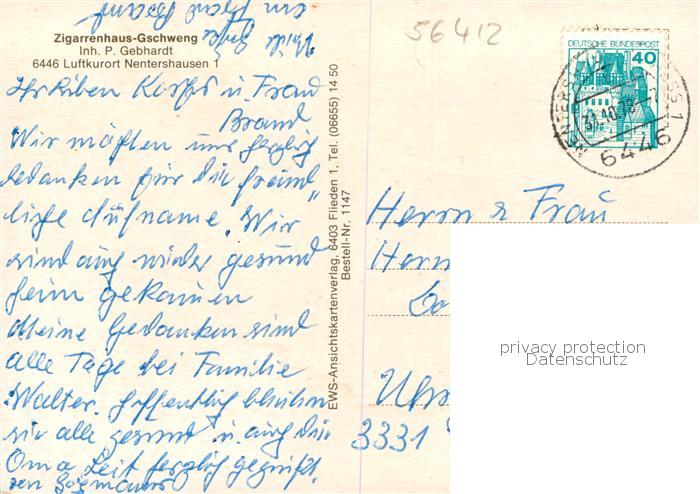 Zigarrenhaus-Gschweng
Inh. P. Gebhardt
6446 Luftkurort Nentershausen 1
56412
DEUTSCHE BUNDESPOST
40
31.10.78
6446
Ihr lieben u. Frau
Brand
Wir möchten uns herzlich
bedanken für die freund„
liche Aufname. Wir
sind auch wieder gesund
heim gekommen
Meine Gedanken sind
alle Tage bei Familie
Walter. Hoffentlich bleiben
sie alle gesund u. auch die
Oma. Seit herzlich gegrüßt.
EWS-Ansichtskartenverlag, 6403 Flieden 1, Tel. (06655) 14 50
Bestell-Nr. 1147
Herrn & Frau
3331
privacy protection
Datenschutz